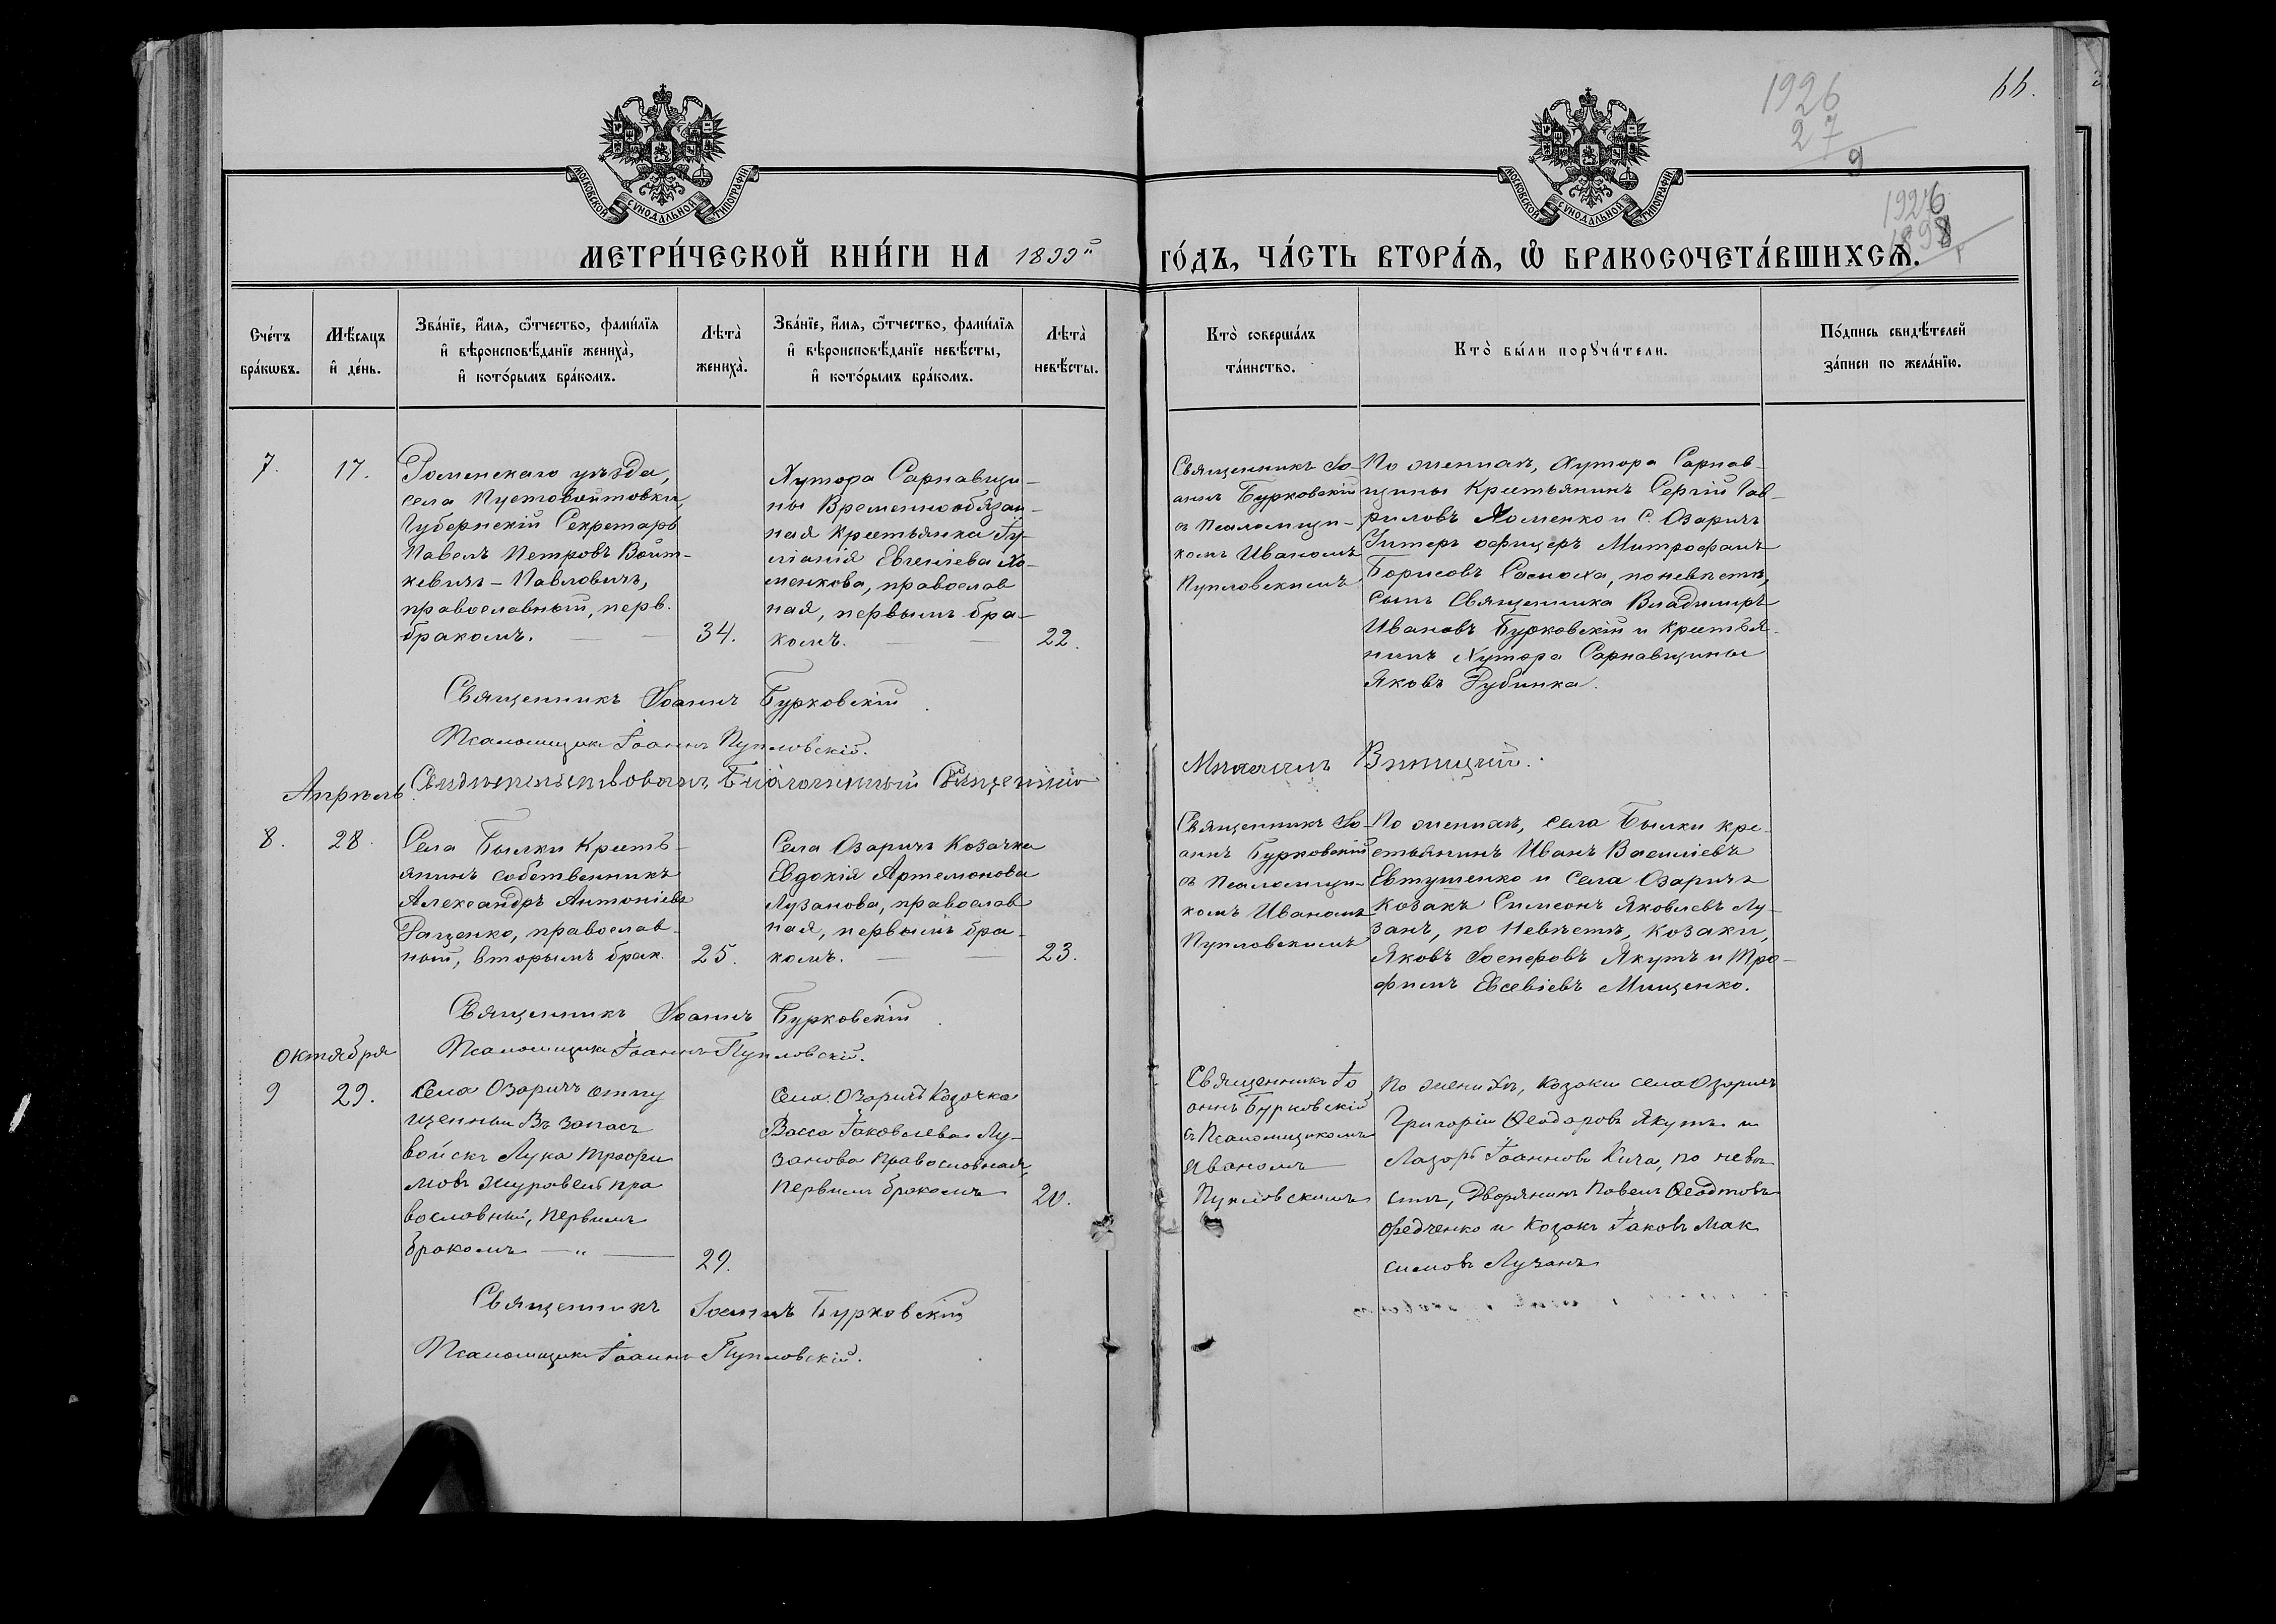 1926
27
9
66.
1926
1898
МОСКОВСКОЙ СѴНОДАЛЬНОЙ ТИПОГРАФІИ
МОСКОВСКОЙ СѴНОДАЛЬНОЙ ТИПОГРАФІИ
МЕТРИ́ЧЕСКОЙ КНИ́ГИ НА 1899й ГО́ДЪ, ЧА́СТЬ ВТОРА́Ѧ, Ѽ БРАКОСОЧЕТА́ВШИХСѦ.
Сче́тъ бра́кѡвъ.
Мѣ́сѧцъ и҆ де́нь.
Зва́нїе, и҆́мѧ, ѻ҆́тчество, фамі́лїѧ
и҆ вѣроисповѣ́данїе жениха̀,
и҆ кото́рымъ бра́комъ.
Лѣта̀ жениха̀.
Зва́нїе, и҆́мѧ, ѻ҆́тчество, фамі́лїѧ
и҆ вѣроисповѣ́данїе невѣ́сты,
и҆ кото́рымъ бра́комъ.
Лѣта̀ невѣ́сты.
Кто̀ соверша́лъ та́инство.
Кто̀ бы́ли порꙋчи́тели.
По́дпись свидѣ́телей
за́писи по жела́нїю.
7.
17.
Роменскаго уѣзда,
села Пустовойтовки,
Губернскій Секретарь
Павелъ Петровъ Войт-
кевичъ-Павловичъ,
православный, перв.
бракомъ.
34.
Хутора Сарнавщи-
ны Временнообязан-
ная Крестьянка Іу-
ліанія Евгеніева Хо-
менкова, православ
ная, первымъ бра-
комъ.
22.
Священникъ Іо-
аннъ Бурковскій
съ Псаломщи-
комъ Иваномъ
Пупловскимъ
По женихѣ, Хутора Сарнав-
щины Крестьянинъ Сергій Гав-
риловъ Хоменко и с. Озаричъ
Унтеръ офицеръ Митрофанъ
Борисовъ Самоха, по невѣстѣ,
сынъ Священника Владиміръ
Ивановъ Бурковскій и крестья-
нинъ Хутора Сарнавщины
Яковъ Рубинка.
Священникъ Іоаннъ Бурковскій
Псаломщикъ Іоаннъ Пупловскій.
Свидѣтельствовалъ Благочинный Священникъ Михаилъ Винницкій.
Апрѣль.
8.
28.
Села Былки Кресть-
янинъ собственникъ
Александръ Антоніевъ
Ращенко, православ-
ный, вторымъ брак.
25.
Села Озаричъ Козачка
Евдокія Артемонова
Лузанова, православ
ная, первымъ бра-
комъ.
23.
Священникъ Іо-
аннъ Бурковскій
съ Псаломщи-
комъ Иваномъ
Пупловскимъ
По женихѣ, села Былки кре-
стьянинъ Иванъ Василіевъ
Евтушенко и села Озаричъ
Козакъ Симеонъ Яковлевъ Лу-
занъ, по невѣстѣ, козаки,
Яковъ Іосифовъ Якутъ и Тро-
фимъ Евсевіевъ Мищенко.
Священникъ Іоаннъ Бурковскій
Псаломщикъ Іоаннъ Пупловскій.
Октября
9
29.
Села Озаричъ отпу
щенный въ запасъ
войскъ Лука Трофи
мовъ Журавель пра
вославный, первымъ
бракомъ — „ —
29.
Села Озаричъ Козачка
Васса Іаковлева Лу-
занова православная,
первымъ бракомъ
20.
Священникъ Іо
аннъ Бурковскій
съ Псаломщикомъ
Иваномъ
Пупловскимъ
По женихѣ, козаки села Озаричъ
Григорій Ѳеодоровъ Якутъ и
Лазорь Іоанновъ Кича, по невѣ
стѣ, Дворянинъ Павелъ Ѳеодотовъ
Федченко и Козакъ Іаковъ Мак
симовъ Лузанъ
Священникъ Іоаннъ Бурковскій
Псаломщикъ Іоаннъ Пупловскій.